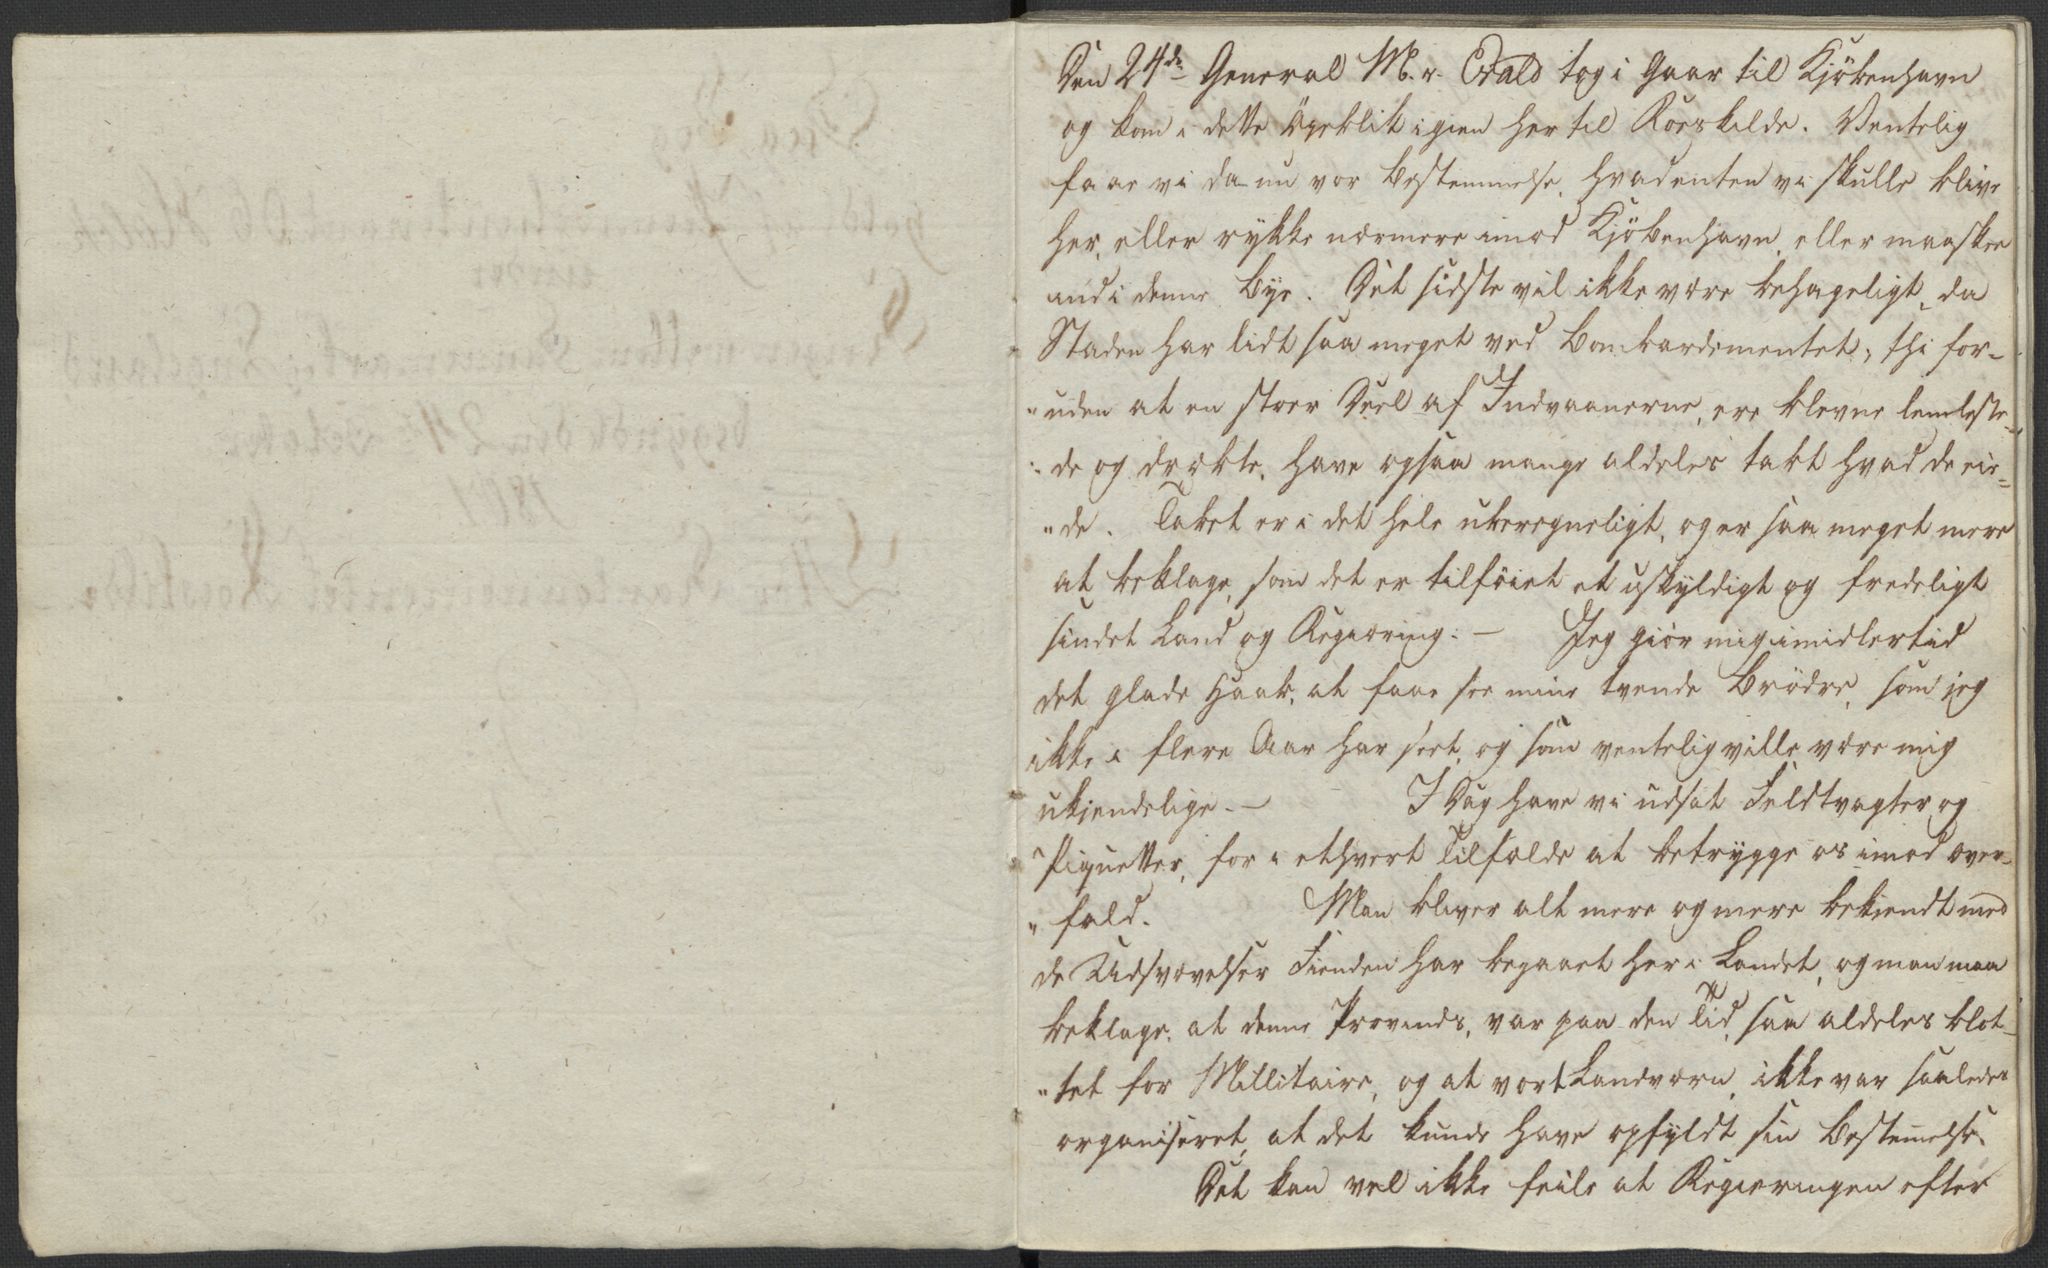 Den 24de General M. v. Evald tog i Gaar til Kjöbenhavn
og kom i dette Öyeblik igien her til Roeskilde. Ventelig
faae vi da nu vor Bestemmelse, hvadenten vi skulle blive
her, eller rykke nærmere imod Kjöbenhavn, eller maaskee
ind i denne Bye. Det sidste vil ikke være behageligt, da
Staden har lidt saa meget ved Bombardementet; thi for-
"uden at en stor Deel af Indvaanerne, ere blevne lemleste-
"de og dræbte, have ogsaa mange aldeles tabt hvad de eie-
"de. Tabet er i det hele uberegneligt, og er saa meget mere
at beklage, som det er tilföiet et uskyldigt og fredeligt
sindet Land og Regiæring. — Jeg giör mig imidlertid
det glade Haab, at faae see mine tvende Brödre, som jeg
ikke i flere Aar har seet, og som ventelig ville være mig
ukjendelige. — I Dag have vi udsat Feldtvagter og
Piquetter, for i ethvert Tilfælde at betrygge os imod over-
"fald. Man bliver alt mere og mere bekiendt med
de Udsvævelser Fienden har begaaet her i Landet, og man maa
beklage, at denne Provinds, var paa den Tid, saa aldeles blot-
"tet for Millitaire, og at vort Landværn, ikke var saaledes
organiseret, at det kunde have opfyldt sin Bestemelse.
Det kan vel ikke feile at Regieringen efter